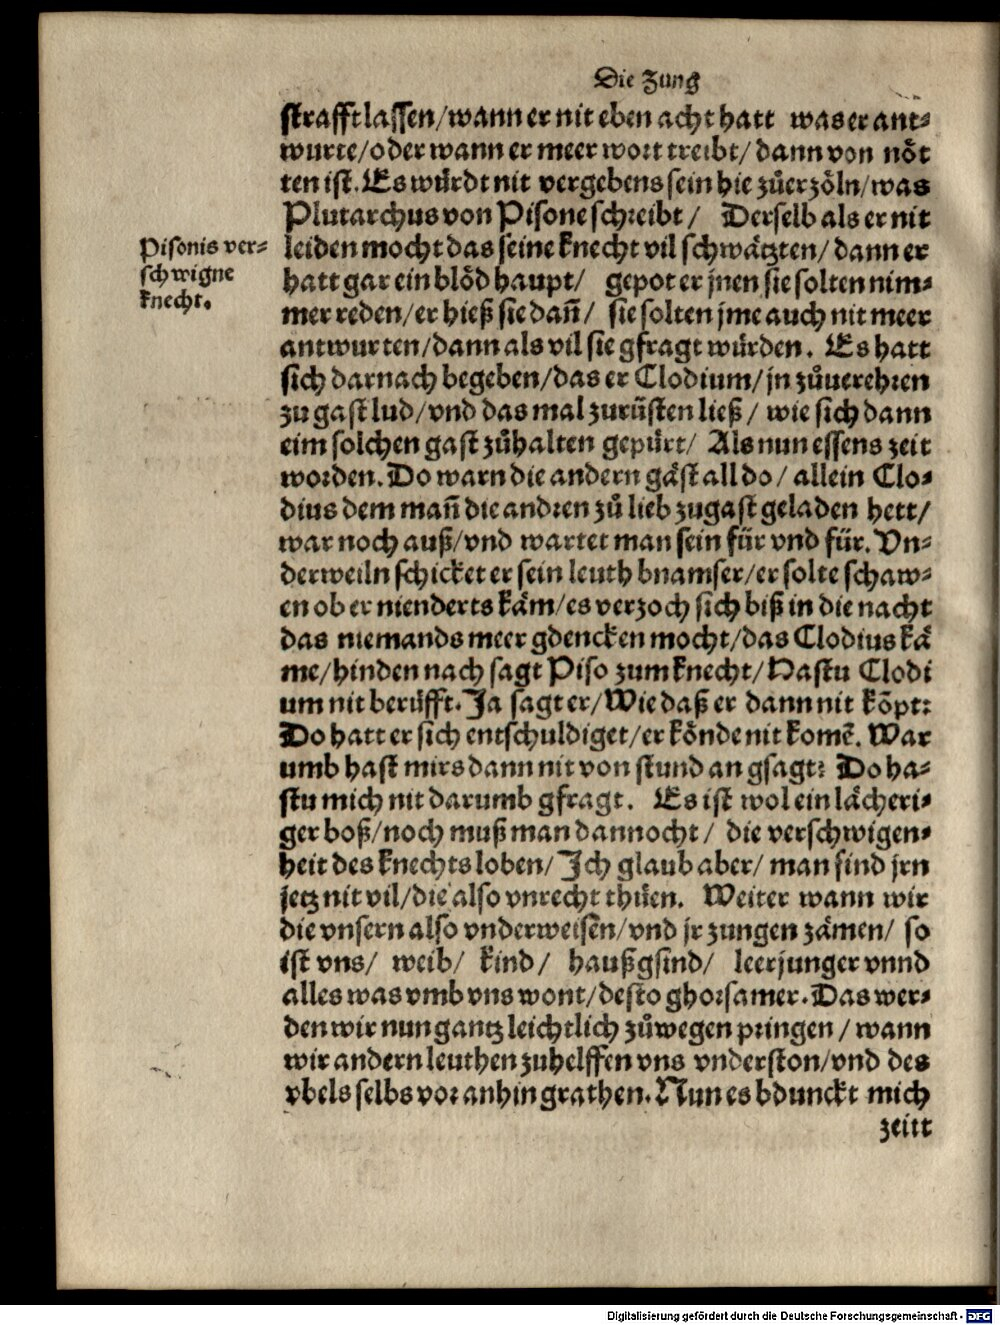 Die Zung
strafft lassen/ wann er nit eben acht hatt was er ant⸗
wurte/ oder wann er meer wort treibt/ dann von nöt
ten ist. Es wuͤrdt nit vergebens sein hie zuͦerzöln/ was
Plutarchus von Pisone schreibt/ Derselb als er nit
Pisonis ver⸗
schwigne
knecht.
leiden mocht das seine knecht vil schwaͤtzten/ dann er
hatt gar ein bloͤd haupt/ gepot er jnen sie solten nim⸗
mer reden/ er hieß sie dañ/ sie solten jme auch nit meer
antwurten/ dann als vil sie gfragt wuͤrden. Es hatt
sich darnach begeben/ das er Clodium/ jn zuͦuerehren
zu gast lud/ vnd das mal zuruͤsten ließ/ wie sich dann
eim solchen gast zuͦhalten gepuͤrt/ Als nun essens zeit
worden. Do warn die andern gaͤst all do/ allein Clo⸗
dius dem mañ die andren zuͦ lieb zugast geladen hett/
war noch auß/ vnd wartet man sein für vnd für. Vn⸗
derweiln schicket er sein leuth bnamser/ er solte schaw⸗
en ob er nienderts kaͤm/ es verzoch sich biß in die nacht
das niemands meer gdencken mocht/ das Clodius kaͤ
me/ hinden nach sagt Piso zum knecht/ Hastu Clodi
um nit beruͤfft. Ja sagt er/ Wie daß er dann nit koͤpt?
Do hatt er sich entschuldiget/ er koͤnde nit komẽ. War
umb hast mirs dann nit von stund an gsagt? Do ha⸗
stu mich nit darumb gfragt. Es ist wol ein laͤcheri⸗
ger boß/ noch muß man dannocht/ die verschwigen⸗
heit des knechts loben/ Ich glaub aber/ man find jrn
jetz nit vil/ die also vnrecht thuͤen. Weiter wann wir
die vnsern also vnderweisen/ vnd jr zungen zaͤmen/ so
ist vns/ weib/ kind/ haußgsind/ leerjunger vnnd
alles was vmb vns wont/ desto ghorsamer. Das wer⸗
den wir nun gantz leichtlich zuͦwegen pringen/ wann
wir andern leuthen zuhelffen vns vnderston/ vnd des
vbels selbs vor anhin grathen. Nun es bdunckt mich
zeitt
Digitalisierung gefördert durch die Deutsche Forschungsgemeinschaft - DFG